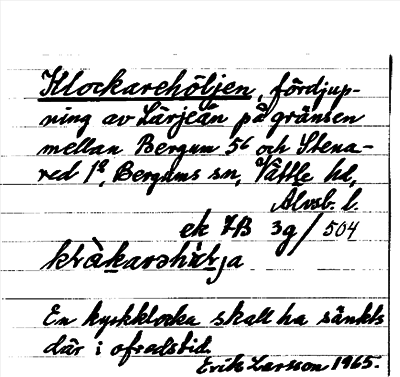 Klockarehöljen, fördjup-
ning av Lärjeån på gränsen
mellan Bergum 5⁶ och Stena-
red 1², Bergums sn, Vättle hd,
Älvsb. l.
ek 7B 3g/504
En kyrkklocka skall ha sänkts
där i ofredstid.
Erik Larsson 1965.